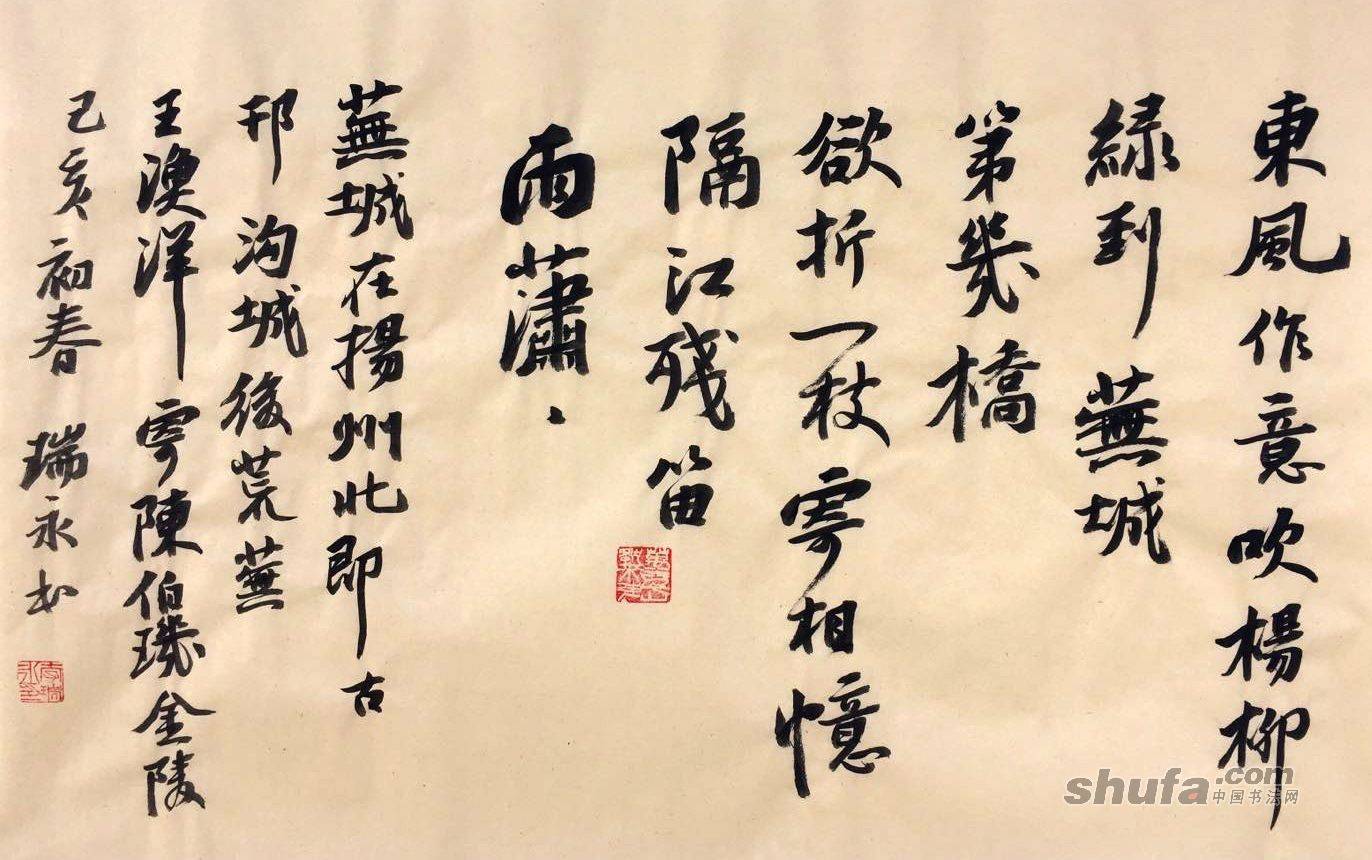 東風作意吹楊柳
緑到蕪城
第幾橋
欲折一枝寄相憶
隔江残笛
雨蕭、
蕪城在揚州北即古
邗溝城後荒蕪
王漁洋寄陳伯璣金陵
己亥初春 瑞永书
shufa.com
中国书法网